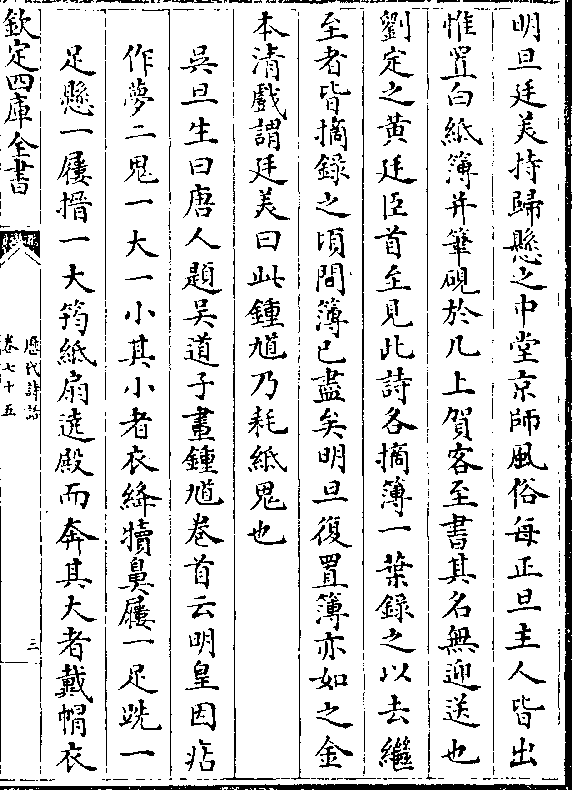 明旦廷美持歸懸之中堂京師風俗每正旦主人皆出
惟置白紙簿并筆硯於几上賀客至書其名無迎送也
劉定之黄廷臣首至見此詩各摘簿一葉錄之以去繼
至者皆摘録之頃間簿已盡矣明旦復置簿亦如之金
本清戲謂廷美曰此鍾馗乃耗紙鬼也
吳旦生曰唐人題吴道子畫鍾馗卷首云明皇因痁
作夢二鬼一大一小其小者衣絳犢鼻屨一足跣一
足懸一屨搢一大筠紙扇遶殿而奔其大者戴帽衣
欽定四庫全書
歴代詩話
卷七十五
三